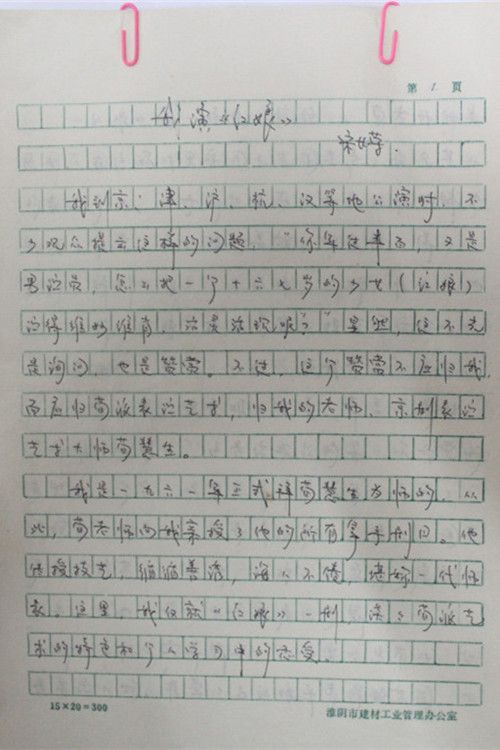 第 1 页
我演《红娘》
宋长荣.
我到京、津、沪、杭、汉等地公演时，不
少观众提出这样的问题，“你年过半百，又是
男演员，怎么把一个十六七岁的少女（红娘）
演得维妙维肖，活灵活现呢？”显然，这不光
是询问，也是赞赏。不过，这个赞赏不应归我，
而应归荀派表演艺术，归我的老师、京剧表演
艺术大师荀慧生。
我是一九六一年正式拜荀慧生为师的，从
此，荀老师向我亲授了他的所有拿手剧目。他
传授技艺，循循善诱，诲人不倦，堪称一代师
表。这里，我仅就《红娘》一剧，谈谈荀派艺
术的特色和个人学习中的感受。
15×20=300
淮阴市建材工业管理办公室